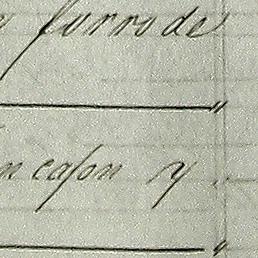 y forro de
"
n cason y "
"